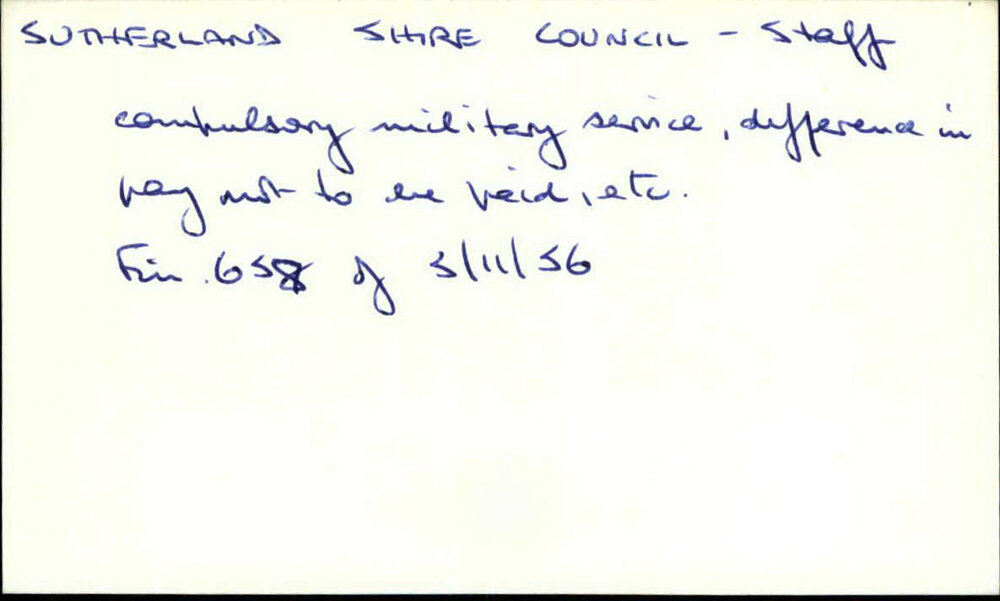 SUTHERLAND SHIRE COUNCIL - Staff
compulsory military service, difference in
pay not to be paid, etc.
Fin. 658 of 5/11/56